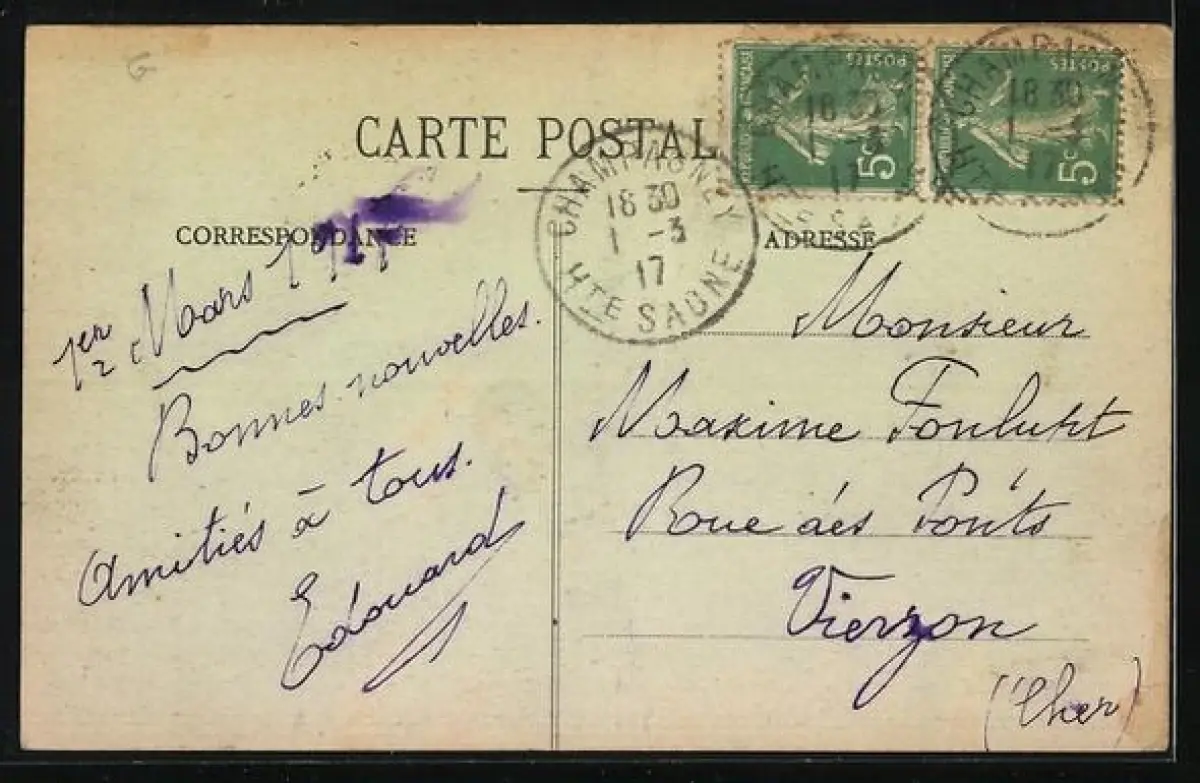 G
CARTE POSTAL
CORRESPONDANCE
ADRESSE
POSTES
5c
POSTES
5c
CHAMPAGNEY
18 30
1 -3
17
HTE SAONE
18 30
17
CHAMP
18 30
1 -3
17
HTE
1er Mars 1917
Bonnes nouvelles.
Amitiés à tous.
Edouard
Monsieur
Maxime
Rue des Ponts
Vierzon
(Cher)